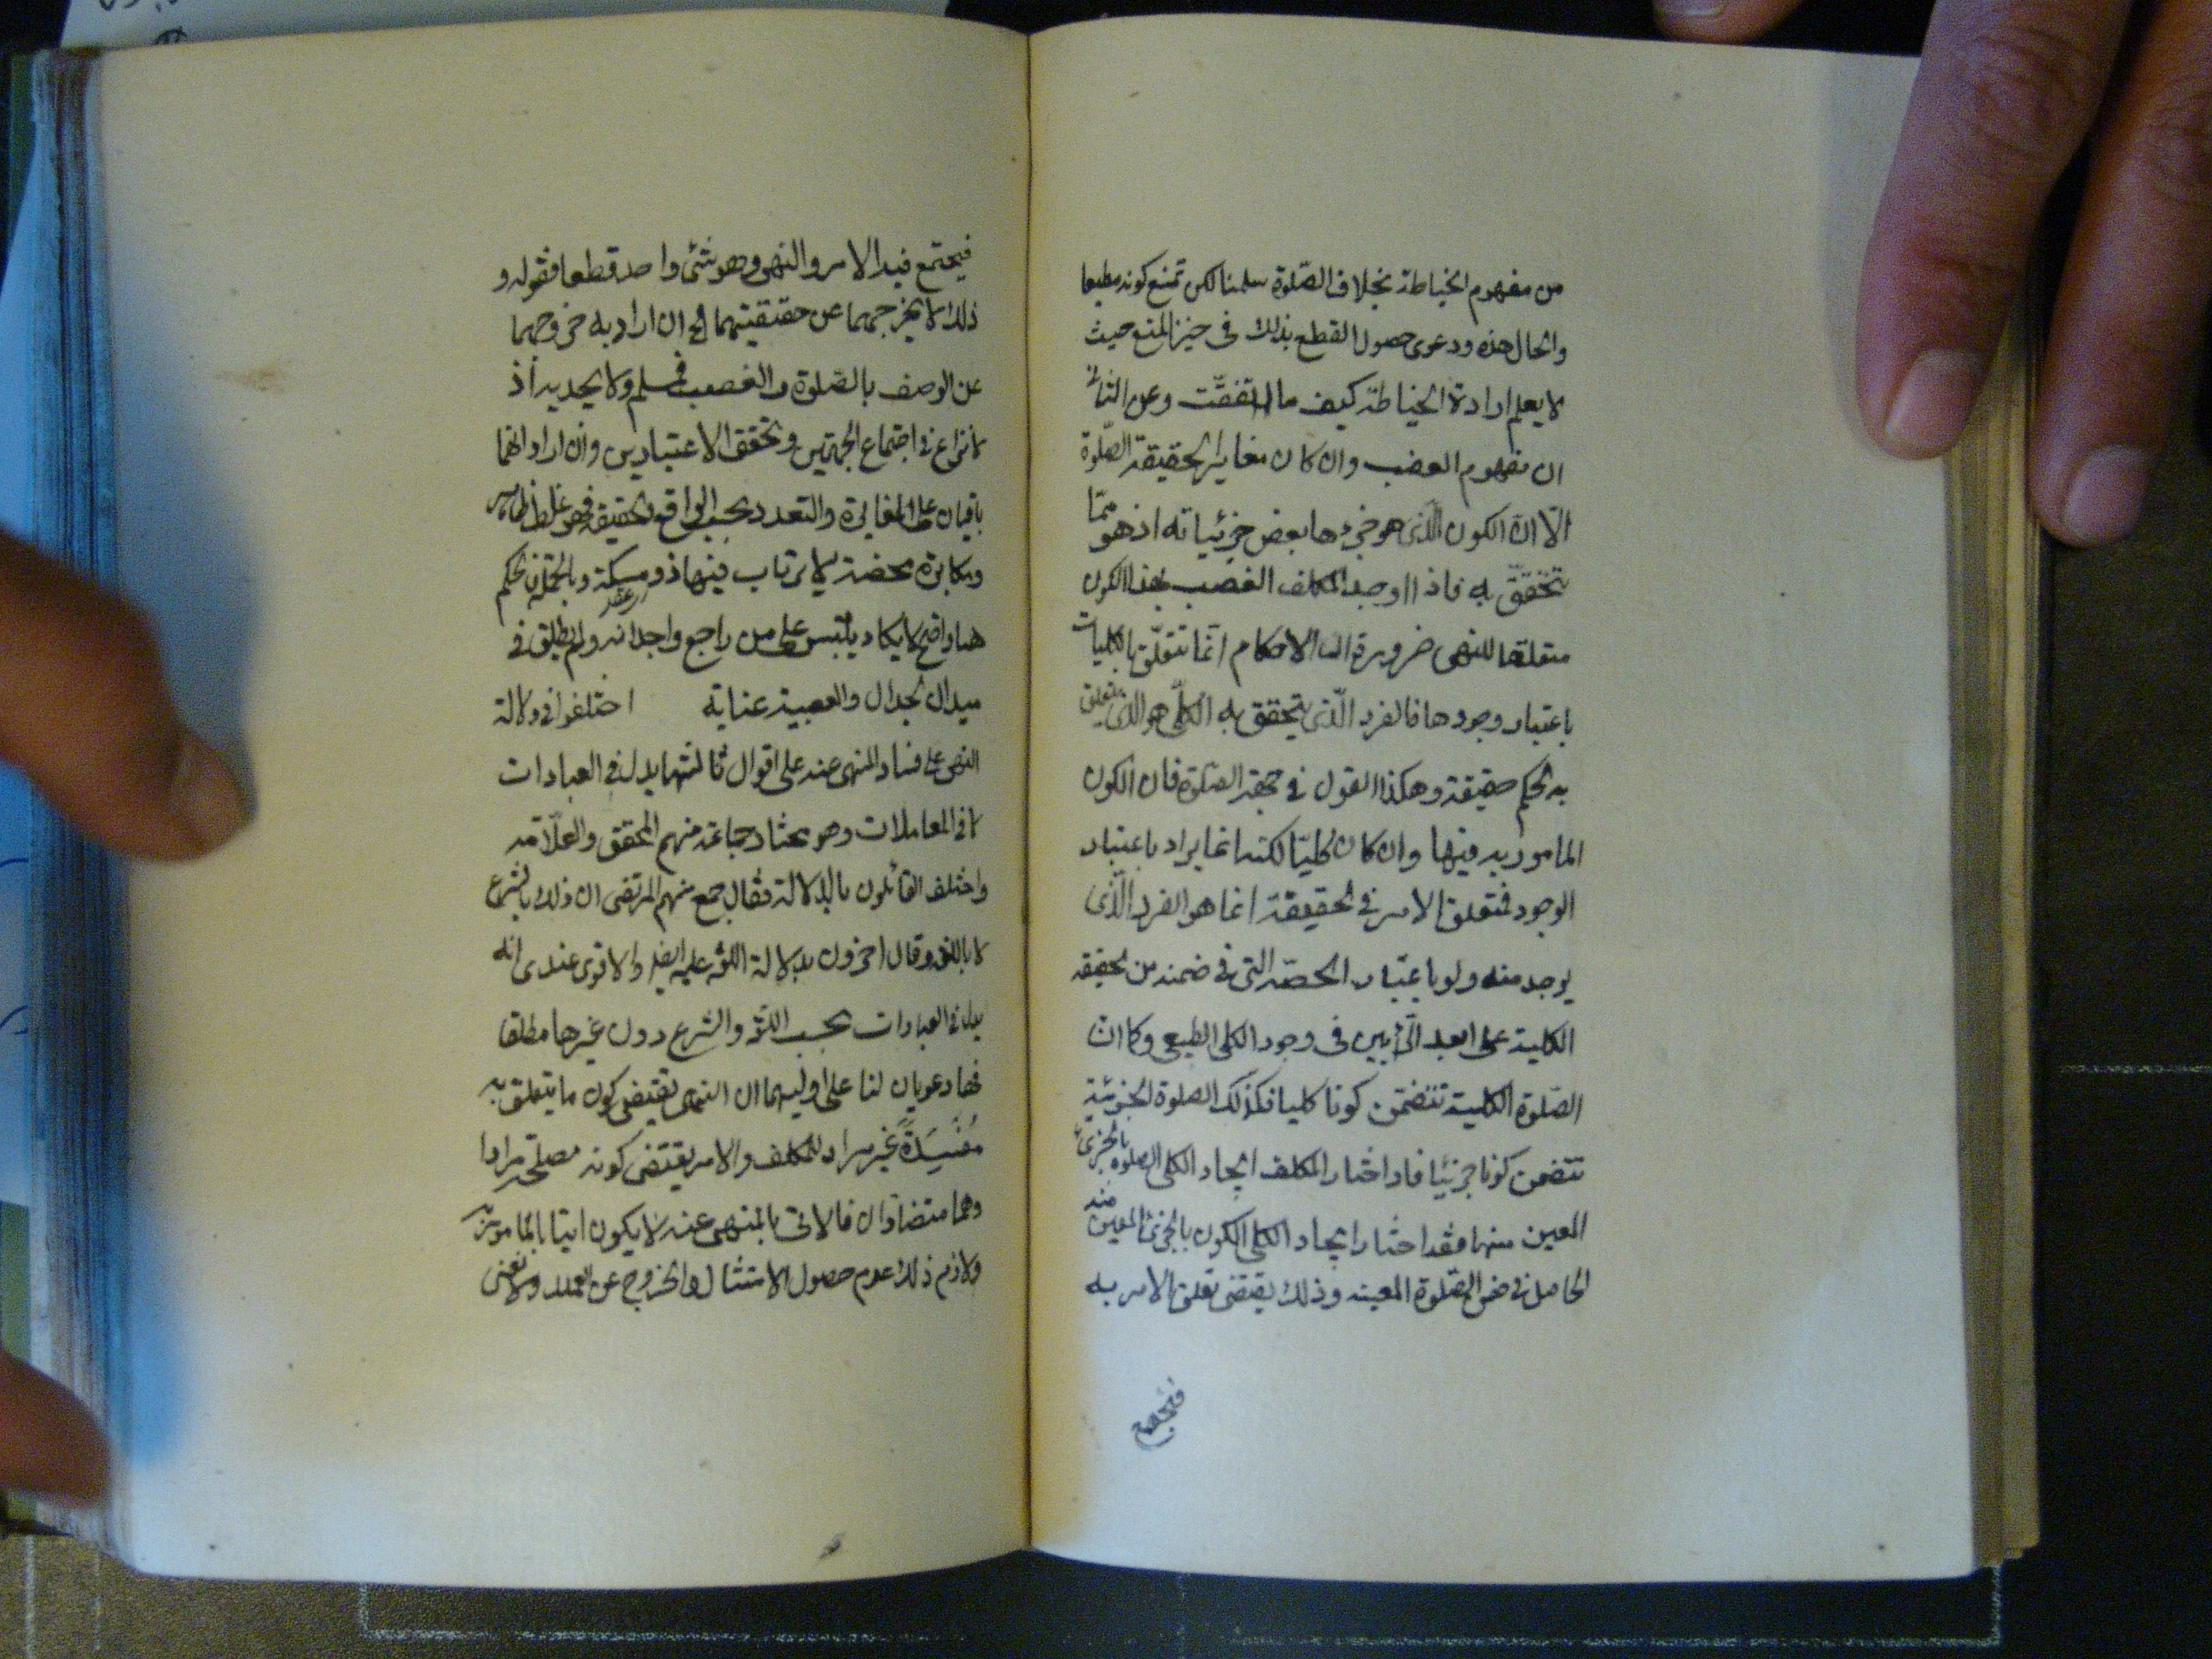 من مفهوم الخياطة بخلاف الصّلوة سلمنا لكن تمنع كونه مطيعا
والحال هذه ودعوى حصول القطع بذلك فى حيز المنع حيث
لا يعلم ارادة الخياطة كيف ما اتفقت وعن الثانى
ان مفهوم الغصب وان كان مغايرا لحقيقة الصّلوة
الّا انّ الكون الّذى هو جزءها بعض جزئياته اذ هو ممّا
يتحقّق به فاذا اوجد المكلف الغصب بهذا الكون
متعلقا للنهى ضرورة ان الاحكام انّما تتعلّق بالكليات
باعتبار وجودها فالفرد الّذى يتحقق به الكلّى هو الذى يتعلق
به الحكم حقيقة وهكذا القول فى جهة الصّلوة فان الكون
المامور به فيها وان كان كليّا لكنه انما يراد باعتبار
الوجود فمتعلق الامر فى الحقيقة انما هو الفرد الّذى
يوجد منه ولو باعتبار الحصّة التى فى ضمنه من الحقيقة
الكلية على ابعد الرأيين فى وجود الكلى الطبيعى وكما ان
الصّلوة الكلية تتضمّن كونا كليا فكذلك الصلوة الجزئية
تتضمن كونا جزئيا فاذا اختار المكلف ايجاد الكلى الصلوة بالجزئى
المعين منها فقد اختار ايجاد الكلى الكون بالجزئى المعين منه
الحاصل فى ضمن الصّلوة المعينة وذلك يقتضى تعلق الامر به
فيجتمع
فيجتمع فيه الامر والنهى وهو شئ واحد قطعا فقوله و
ذلك لا يخرجهما عن حقيقتهما الخ ان اراد به خروجهما
عن الوصف بالصّلوة والغصب فمسلم ولا يجديه اذ
لا نزاع فى اجتماع الجهتين وتحقق الاعتبارين وان اراد انهما
باقيان على المغايرة والتعدد بحسب الواقع والحقيقة فهو غلط ظاهر
ومكابرة محضة لا يرتاب فيها ذو مسكة وبالجملة فالحكم
هنا واضح لا يكاد يلتبس على من راجع وجدانه ولم يطلق فى
ميدان الجدال والعصبية عنانه اختلفوا فى دلالة
النهى على فساد المنهى عنه على اقوال ثالثها يدل فى العبادات
لا فى المعاملات وهو مختار جماعة منهم المحقق والعلّامة
واختلف القائلون بالدلالة فقال جمع منهم المرتضى ان ذلك بالشرع
لا باللغة وقال اخرون بدلالة اللغة عليه ايضا والاقوى عندى انه
يدل فى العبادات بحسب اللغة والشرع دون غيرها مطلقا
فهنا دعويان لنا على اوليهما ان النهى يقتضى كون ما يتعلق به
مفسدةً غير مراد للمكلف والامر يقتضى كونه مصلحة مرادا
وهما متضادان فالاتى بالمنهى عنه لا يكون اتيا بالمامور به
ولازم ذلك عدم حصول الامتثال والخروج عن العهدة ولا نعنى